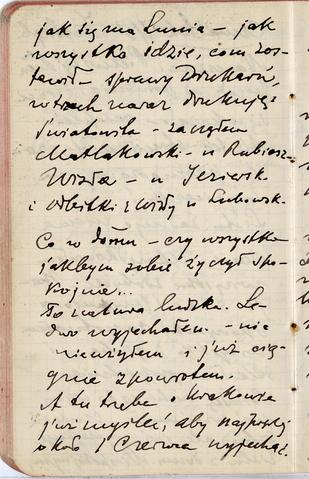 jak się ma Lunia – jak
wszystko idzie, com zos-
tawił – sprawy Drukarń,
w trzech naraz drukuję:
Światowita – zacząłem
Matlakowski – u Rubiesz-
Wisła – u Jeziersk.
i odbitki z Wisły u Lubowsk.
Co w domu – czy wszystko
jakbym sobie życzył spo-
kojnie...
To natura ludzka. Le-
dwo wyjechałem – nic
nie użyłem i już cią-
gnie z powrotem.
A tu trzeba o Krakowie
już myśleć, aby najwyżej
około 1 Czerwca wyjechać.